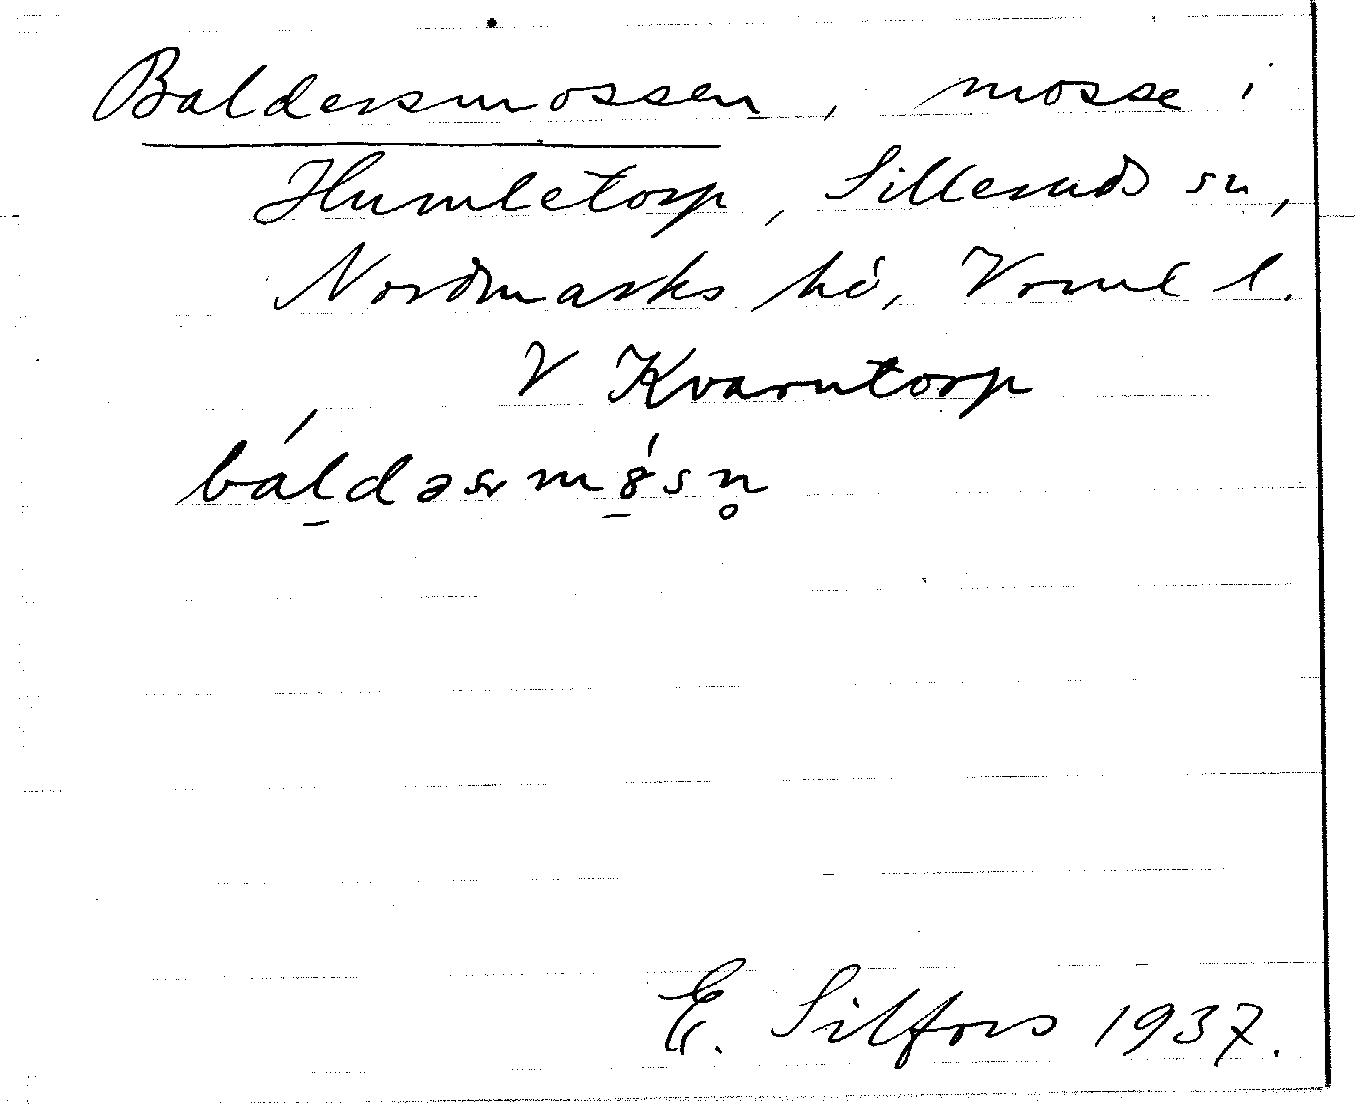 Baldersmossen, mosse i
Humletorp, Silleruds sn,
Nordmarks hd, Verml l.
V Kvarntorp
báldəsmǿsn̥
E. Silfors 1937.